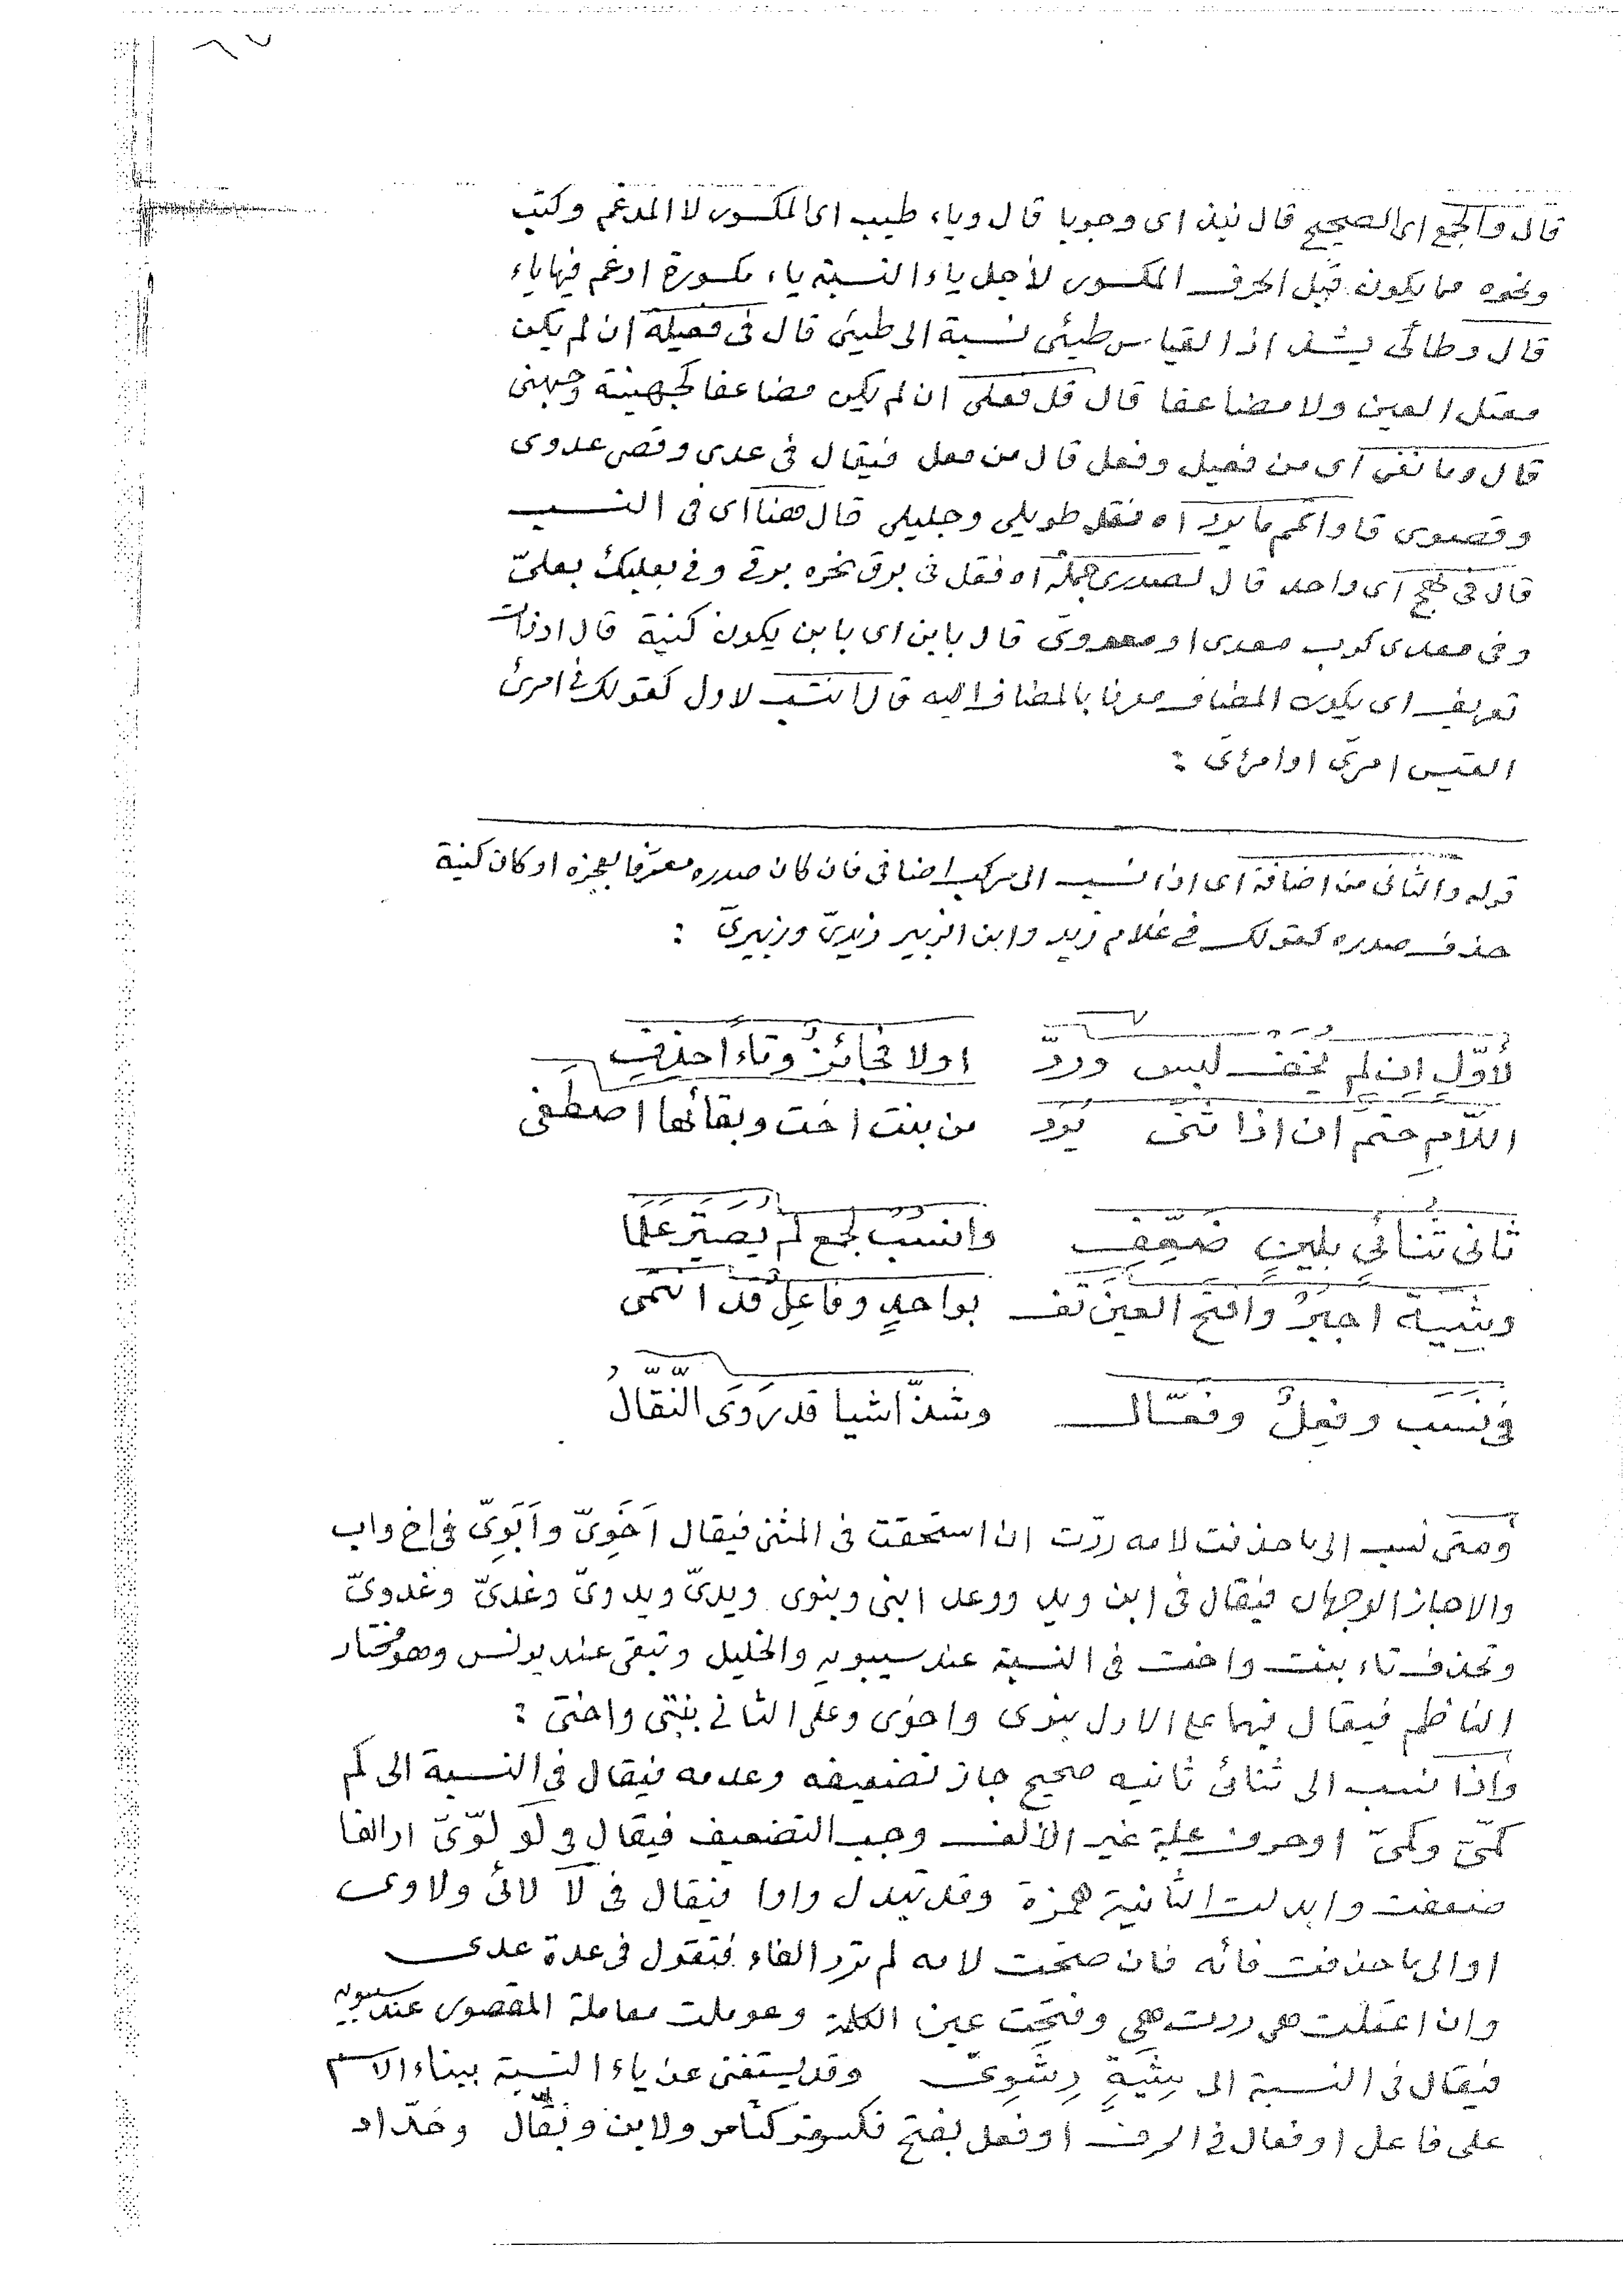 ٦٧
قال والجمع اى الصحيح قال نبذ اى وجوبا قال وياء طيب اى المكسور لا المدغم وكتب
ونحوه مما يكون قبل الحرف المكسور لأجل ياء النسبة ياء مكسورة ادغم فيها ياء
قال وطائى يشذ اذ القياس طيئى نسبة الى طيئ قال فى فعيلة ان لم يكن
معتل العين ولا مضاعفا قال قل فعلى ان لم يكن مضاعفا كجهينة وجهنى
قال وما نقى اى من فعيل وفعل قال من معل فيقال فى عدى وقصى عدوى
وقصوى قا واتمم ما يرد اه فقل طويلى وجليلى قال هنا اى فى النسب
قال فى نهج اى واحد قال لصدرى جملة اه فقل فى برق نحره برقى وفى بعلبك بعلىّ
وفى معدى كرب معدى او معدوى قال بابن اى بابن يكون كنية قال اوذات
تعريف اى يكون المضاف معرفا بالمضاف اليه قال انتسب لاول كقولك فى امرئ
القيس امرئى اوامرءى :
قوله والثانى من اضافة اى اذا نسب الى مركب اضافى فان كان صدره معرفا بعجزه او كان كنية
حذف صدره كقولك فى غلام زيد وابن الزبير زيدىّ وزبيرىّ :
لأوّلٍ ان لم يخف لبس وردّ اولا فجائزٌ وتاءً احذف
اللّامِ حتم ان اذا ثنى يُرد من بنت اخت وبقائها اصطفى
ثانى ثُنائى بلينٍ ضعّفِ وانسُب لجمع لم يصيّر علما
وشية اجبرْ وافتح العين تف بواحدٍ وفاعِلٌ قد انتمى
فى نسب وفعِلٌ وفعّال وشذّ اشيا قد رَوَى النّقّالُ
ومتى نسب الى ما حذفت لامه ردّت ان استحقت فى المثنى فيقال اَخَوِىّ واَبَوِىّ فى اخ واب
والا جاز الوجهان فيقال فى ابن ويد ووعد ابنى وبنوى ويدىّ ويدوىّ وغدىّ وغدوىّ
وتحذف تاء بنت واخت فى النسبة عند سيبويه والخليل وتبقى عند يونس وهو مختار
الناظم فيقال فيهما على الاول بنوى واخوى وعلى الثانى بنتى واختى :
واذا نسب الى ثنائى ثانيه صحيح جاز تضعيفه وعدمه فيقال فى النسبة الى كم
كمّىّ وكمىّ اوحرف علة غير الألف وجب التضعيف فيقال فى لو لوّىّ او الفا
ضعفت وابدلت الثانية همزة وقد تبدل واوا فيقال فى لا لائى ولاوى
او الى ما حذفت فائه فان صحّت لامه لم ترد الفاء فتقول فى عدة عدى
وان اعتلت هى ردت هى وفتحت عين الكلمة وعوملت معاملة المقصور عند سيبويه
فيقال فى النسبة الى شِيَةٍ وِشَوِىّ وقد يستغنى عن ياء النسبة ببناء الاسم
على فاعل او فعال فى الحرف او فعل بفتح فكسر كتامر ولابن وبَقّال وحدّاد